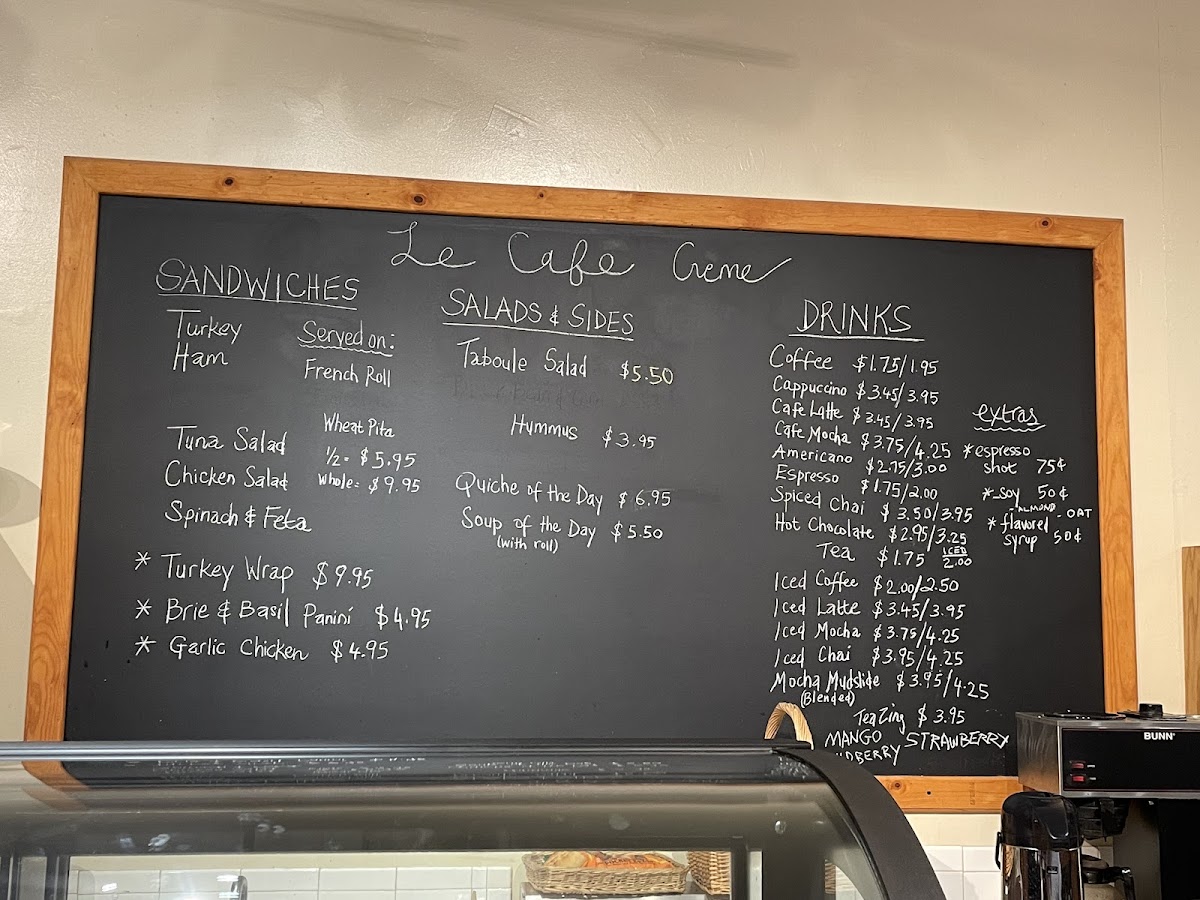 Le Cafe Creme
SANDWICHES
Turkey
Ham
Served on:
French Roll
Wheat Pita
Tuna Salad
1/2 = $5.95
Chicken Salad
Whole = $9.95
Spinach & Feta
* Turkey Wrap $9.95
* Brie & Basil Panini $4.95
* Garlic Chicken $4.95
SALADS & SIDES
Taboule Salad $5.50
Hummus $3.95
Quiche of the Day $6.95
Soup of the Day $5.50
(with roll)
DRINKS
Coffee $1.75/1.95
Cappuccino $3.45/3.95
Cafe Latte $3.45/3.95
Cafe Mocha $3.75/4.25
Americano $2.75/3.00
Espresso $1.75/2.00
Spiced Chai $3.50/3.95
Hot Chocolate $2.95/3.25
Tea $1.75 ICED 2.00
Iced Coffee $2.00/2.50
Iced Latte $3.45/3.95
Iced Mocha $3.75/4.25
Iced Chai $3.95/4.25
Mocha Mudslide $3.95/4.25
(Blended)
TeaZing $3.95
MANGO STRAWBERRY
extras
* espresso
shot 75¢
* soy 50¢
- ALMOND - OAT
* flavored
syrup 50¢
BUNN